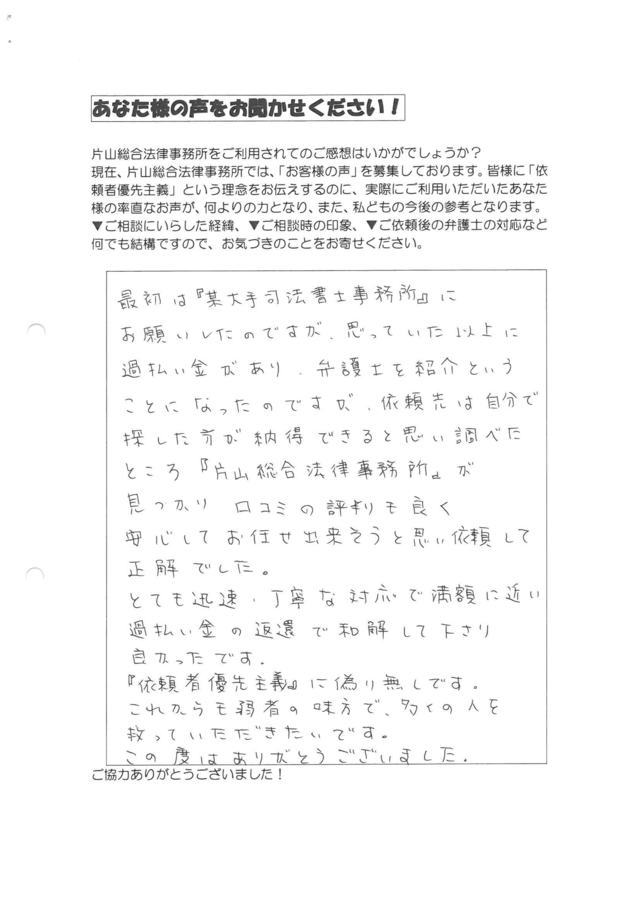 あなた様の声をお聞かせください！
片山総合法律事務所をご利用されてのご感想はいかがでしょうか？
現在、片山総合法律事務所では、「お客様の声」を募集しております。皆様に「依
頼者優先主義」という理念をお伝えするのに、実際にご利用いただいたあなた
様の率直なお声が、何よりの力となり、また、私どもの今後の参考となります。
▼ご相談にいらした経緯、▼ご相談時の印象、▼ご依頼後の弁護士の対応など
何でも結構ですので、お気づきのことをお寄せください。
最初は『某大手司法書士事務所』に
お願いしたのですが、思っていた以上に
過払い金があり、弁護士を紹介という
ことになったのですが、依頼先は自分で
探した方が納得できると思い調べた
ところ『片山総合法律事務所』が
見つかり 口コミの評判も良く
安心してお任せ出来そうと思い依頼して
正解でした。
とても迅速・丁寧な対応で満額に近い
過払い金の返還で和解して下さり
良かったです。
『依頼者優先主義』に偽り無しです。
これからも弱者の味方で、多くの人を
救っていただきたいです。
この度はありがとうございました。
ご協力ありがとうございました！